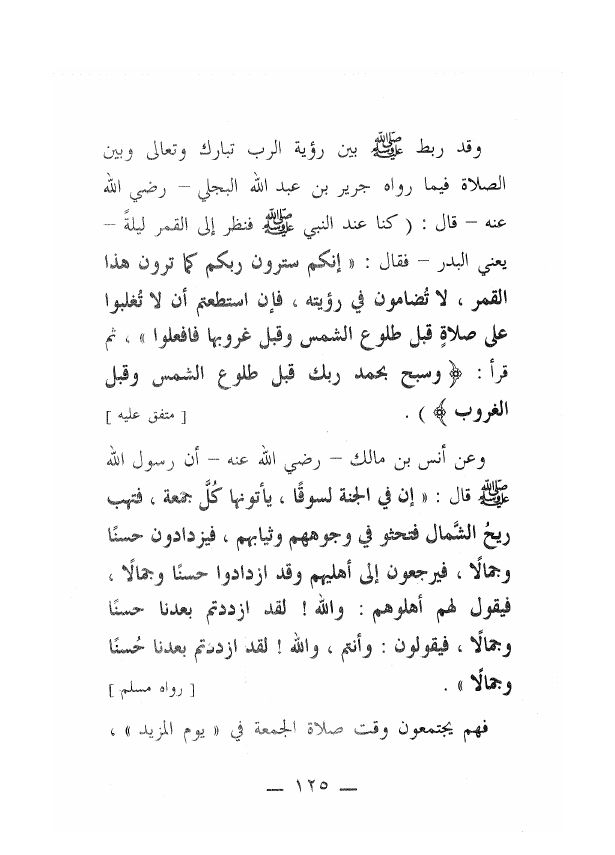 وقد ربط ﷺ بين رؤية الرب تبارك وتعالى وبين
الصلاة فيما رواه جرير بن عبد الله البجلي – رضي الله
عنه – قال : ( كنا عند النبي ﷺ فنظر إلى القمر ليلةً –
يعني البدر – فقال : « إنكم سترون ربكم كما ترون هذا
القمر ، لا تُضامون في رؤيته ، فإن استطعتم أن لا تُغلبوا
على صلاةٍ قبل طلوع الشمس وقبل غروبها فافعلوا » ، ثم
قرأ : ﴿ وسبح بحمد ربك قبل طلوع الشمس وقبل
الغروب ﴾ ) . [ متفق عليه ]
وعن أنس بن مالك – رضي الله عنه – أن رسول الله
ﷺ قال : « إن في الجنة لسوقًا ، يأتونها كُلَّ جمعة ، فتهب
ريحُ الشَّمال فتحثو في وجوههم وثيابهم ، فيزدادون حسنًا
وجمالًا ، فيرجعون إلى أهليهم وقد ازدادوا حسنًا وجمالًا ،
فيقول لهم أهلوهم : والله ! لقد ازددتم بعدنا حسنًا
وجمالًا ، فيقولون : وأنتم ، والله ! لقد ازددتم بعدنا حُسنًا
وجمالًا » . [ رواه مسلم ]
فهم يجتمعون وقت صلاة الجمعة في « يوم المزيد » ،
— ١٢٥ —